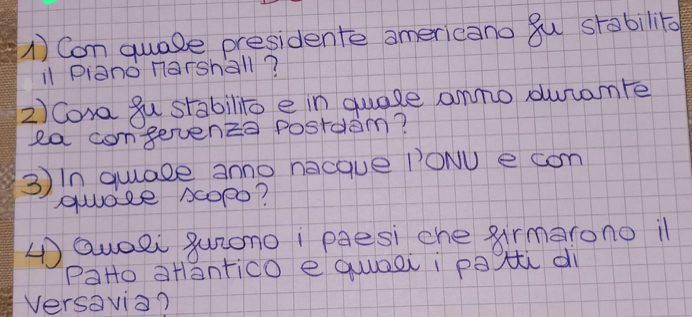 1) Con quale presidente americano fu stabilito
il Piano Marshall?
2) Cosa fu stabilito e in quale anno durante
la conferenza Postdam?
3) In quale anno nacque l'ONU e con
quale scopo?
4) Quali furono i paesi che firmarono il
Patto atlantico e quali i patti di
versavia?